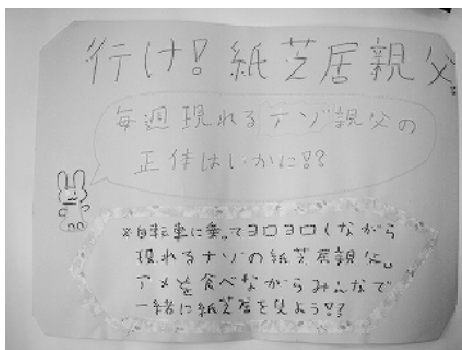 行け!紙芝居親父。
毎週現れるナゾ親父の
正体はいかに!?
※自転車に乗ってヨロヨロしながら
現れるナゾの紙芝居親父。
アメを食べながらみんなで
一緒に紙芝居を見よう!?